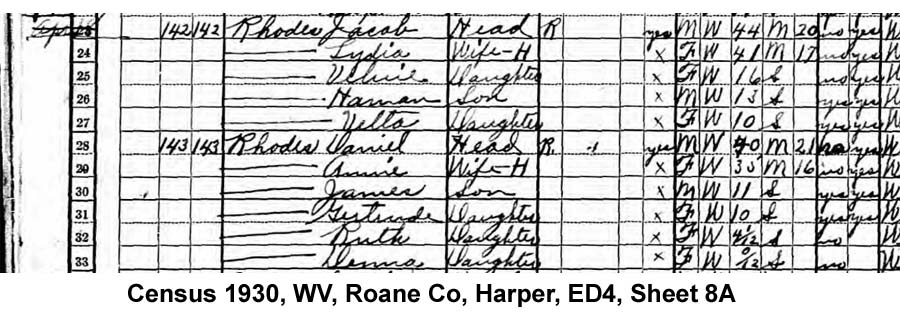 142 142 Rhodes Jacob Head R yes M W 44 M 20 no yes
24 Lydia Wife-H x F W 41 M 17 no yes
25 Daughter x F W 16 S no yes
26 Haman Son x M W 13 S yes yes
27 Vella Daughter x F W 10 S yes yes
28 143 143 Rhodes Daniel Head R yes M W 40 M 21 no yes
29 Annie Wife-H x F W 35 M 16 no yes
30 James Son x M W 11 S yes yes
31 Gertrude Daughter x F W 10 S yes yes
32 Ruth Daughter x F W S no W
33 Daughter x F W S no W
Census 1930, WV, Roane Co, Harper, ED4, Sheet 8A